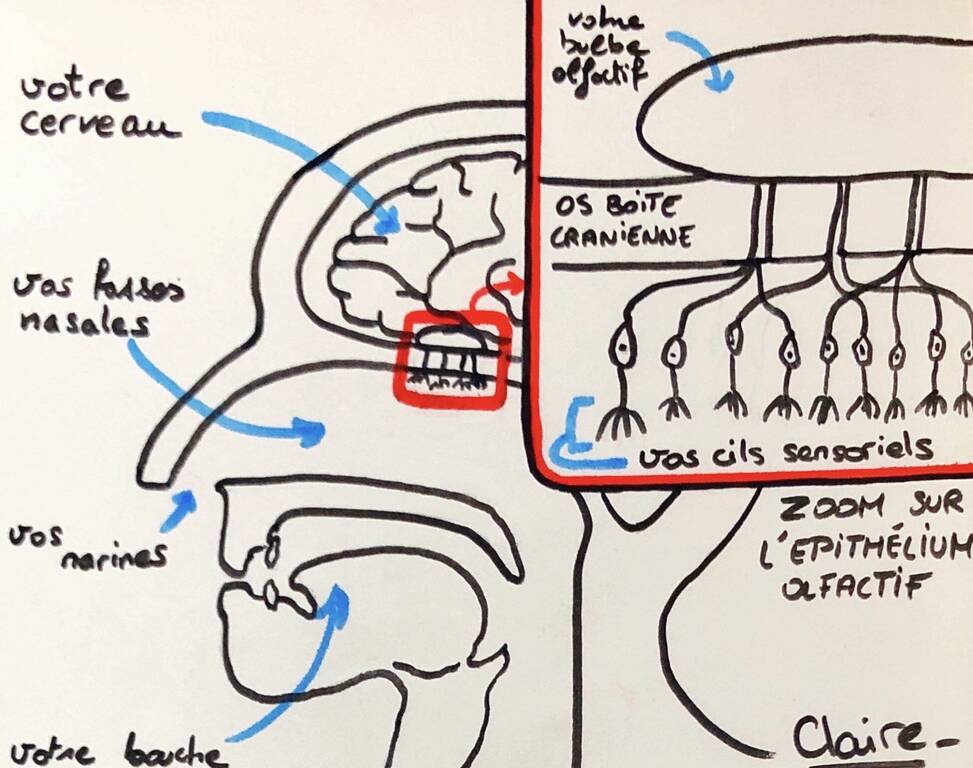 votre
cerveau
vos fosses
nasales
vos
narines
votre bouche
votre
bulbe
olfactif
OS BOîTE
CRANiENNE
vos cils sensoriels
ZOOM SUR
L'EPiTHÉLiUM
OLFACTiF
Claire-